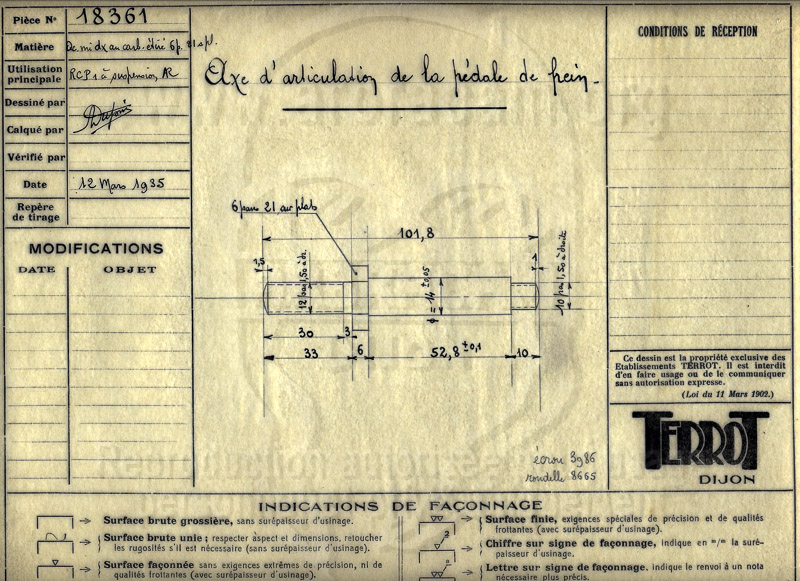 Pièce N° 18361
Matière Ac. mi dx au carb. étiré 6 p. 21 s pl.
Utilisation principale RCP1 à suspension AR
Dessiné par
Calqué par
Vérifié par
Date 12 Mars 1935
Repère de tirage
MODIFICATIONS
DATE OBJET
Axe d'articulation de la pédale de frein
6 pans 21 sur plats
101,8
1,5
12 pas 1,50 à dr.
φ = 14 ±0,05
1
10 pas 1,50 à droite
30
3
33
6
52,8 ±0,1
10
écrou 3986
rondelle 8665
CONDITIONS DE RÉCEPTION
Ce dessin est la propriété exclusive des
Etablissements TERROT. Il est interdit
d'en faire usage ou de le communiquer
sans autorisation expresse.
(Loi du 11 Mars 1902.)
TERROT
DIJON
INDICATIONS DE FAÇONNAGE
Surface brute grossière, sans surépaisseur d'usinage.
Surface brute unie ; respecter aspect et dimensions, retoucher
les rugosités s'il est nécessaire (sans surépaisseur d'usinage).
Surface façonnée sans exigences extrêmes de précision, ni de
qualités frottantes (avec surépaisseur d'usinage).
Surface finie, exigences spéciales de précision et de qualités
frottantes (avec surépaisseur d'usinage).
Chiffre sur signe de façonnage, indique en m/m la suré-
paisseur d'usinage.
Lettre sur signe de façonnage. indique le renvoi à un nota
nécessaire plus précis.